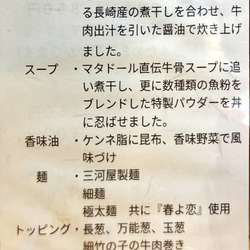 る長崎産の煮干しを合わせ、牛
肉出汁を引いた醤油で炊き上げ
ました。
スープ ・マタドール直伝牛骨スープに追
い煮干し、更に数種類の魚粉を
ブレンドした特製パウダーを丼
に忍ばせました。
香味油 ・ケンネ脂に昆布、香味野菜で風
味づけ
麺 ・三河屋製麺
細麺
極太麺 共に『春よ恋』使用
トッピング・長葱、万能葱、玉葱
細竹の子の牛肉巻き